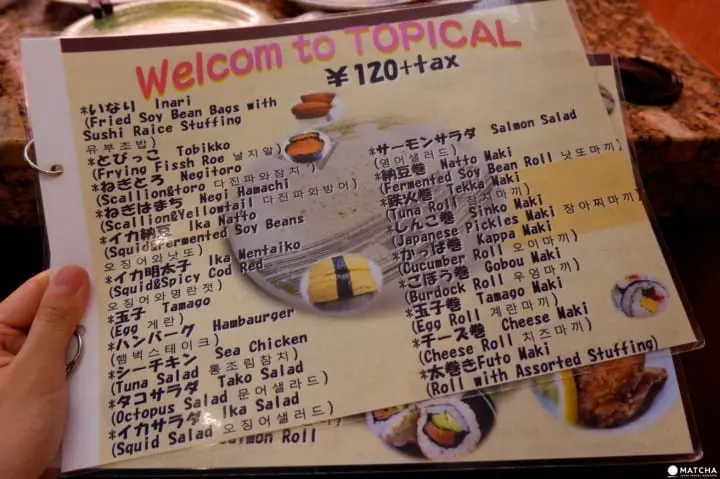 Welcom to TOPICAL
¥120+tax
*いなり Inari
(Fried Soy Bean Bags with
Sushi Raice Stuffing
유부초밥)
*とびっこ Tobikko
(Frying Fissh Roe 날치알)
*ねぎとろ Negitoro
(Scallion&toro 다진파와참치)
*ねぎはまち Negi Hamachi
(Scallion&Yellowtail 다진파와방어)
*イカ納豆 Ika Natto
(Squid&Fermented Soy Beans
오징어와낫또)
*イカ明太子 Ika Mentaiko
(Squid&Spicy Cod Red
오징어와명란젓)
*玉子 Tamago
(Egg 계란)
*ハンバーグ Hamburger
(햄벅스테이크)
*シーチキン Sea Chicken
(Tuna Salad 통조림참치)
*タコサラダ Tako Salad
(Octopus Salad 문어샐라드)
*イカサラダ Ika Salad
(Squid Salad 오징어샐러드)
Salmon Roll
*サーモンサラダ Salmon Salad
(영어샐러드)
*納豆巻 Natto Maki
(Fermented Soy Bean Roll 낫또마끼)
*鉄火巻 Tekka Maki
(Tuna Roll 참치마끼)
*しんこ巻 Sinko Maki
(Japanese Pickles Maki 장아찌마끼)
*かっぱ巻 Kappa Maki
(Cucumber Roll 오이마끼)
*ごぼう巻 Gobou Maki
(Burdock Roll 우엉마끼)
*玉子巻 Tamago Maki
(Egg Roll 계란마끼)
*チーズ巻 Cheese Maki
(Cheese Roll 치즈마끼)
*太巻きFuto Maki
(Roll with Assorted Stuffing)
MATCHA